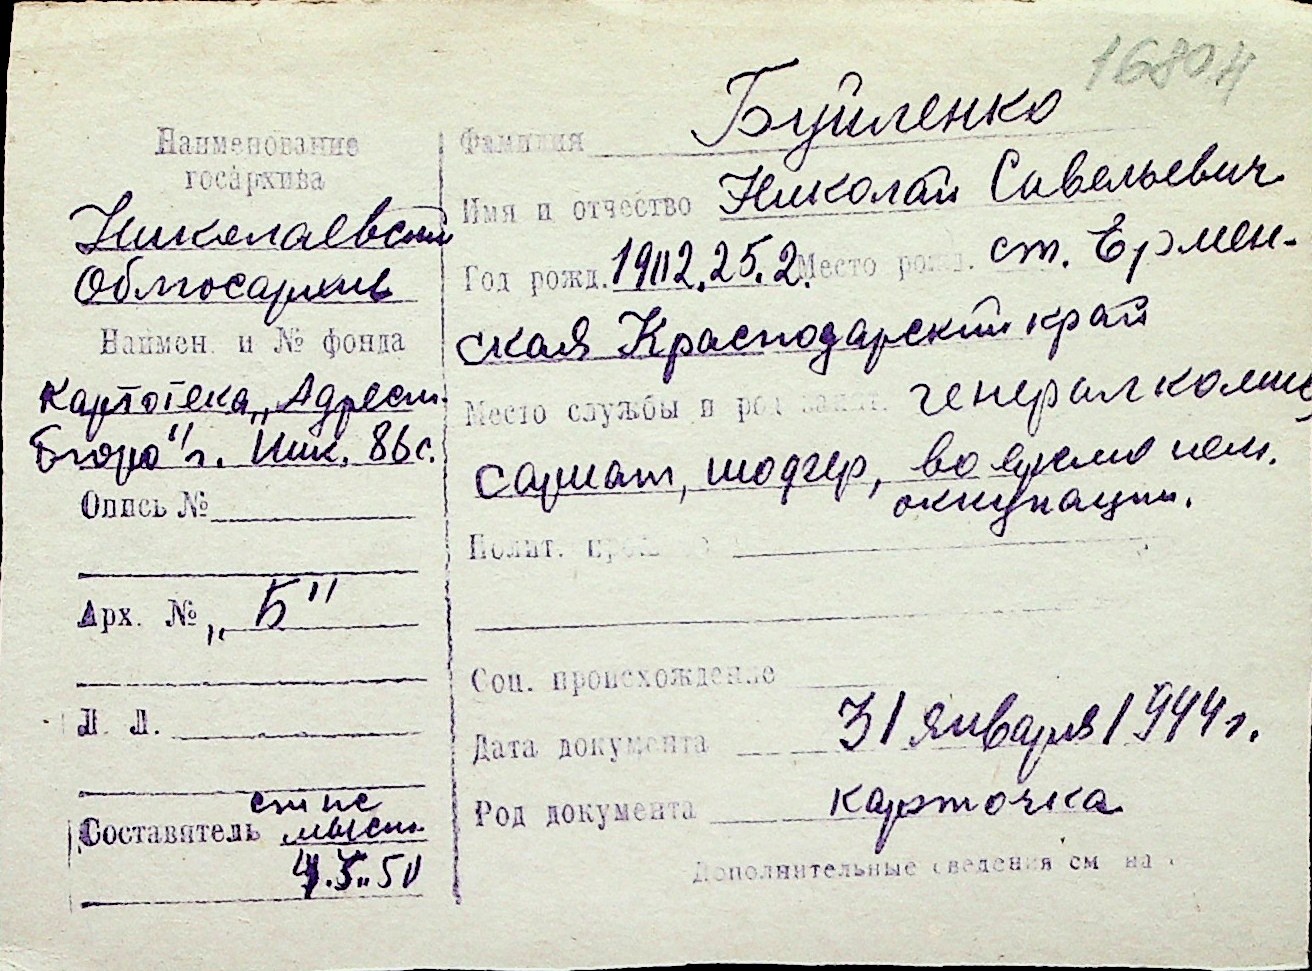 Наименование
госархива
Николаевский
Облгосархив
Наимен. и № фонда
Картотека „Адресн.
Бюро" г. Ник. 86 с.
Опись №
Арх. № „Б"
Л. Л.
Составитель
4.5.50
Фамилия Буйленко
Имя и отчество Николай Савельевич
Год рожд. 1902.25.2. Место рожд. ст. Ермен-
ская Краснодарский край
Место службы и род занят. генералкомис
сариат, шофер, во время нем.
оккупации.
Полит.
Соц. происхождение
Дата документа 31 января 1944 г.
Род документа карточка
Дополнительные сведения см на